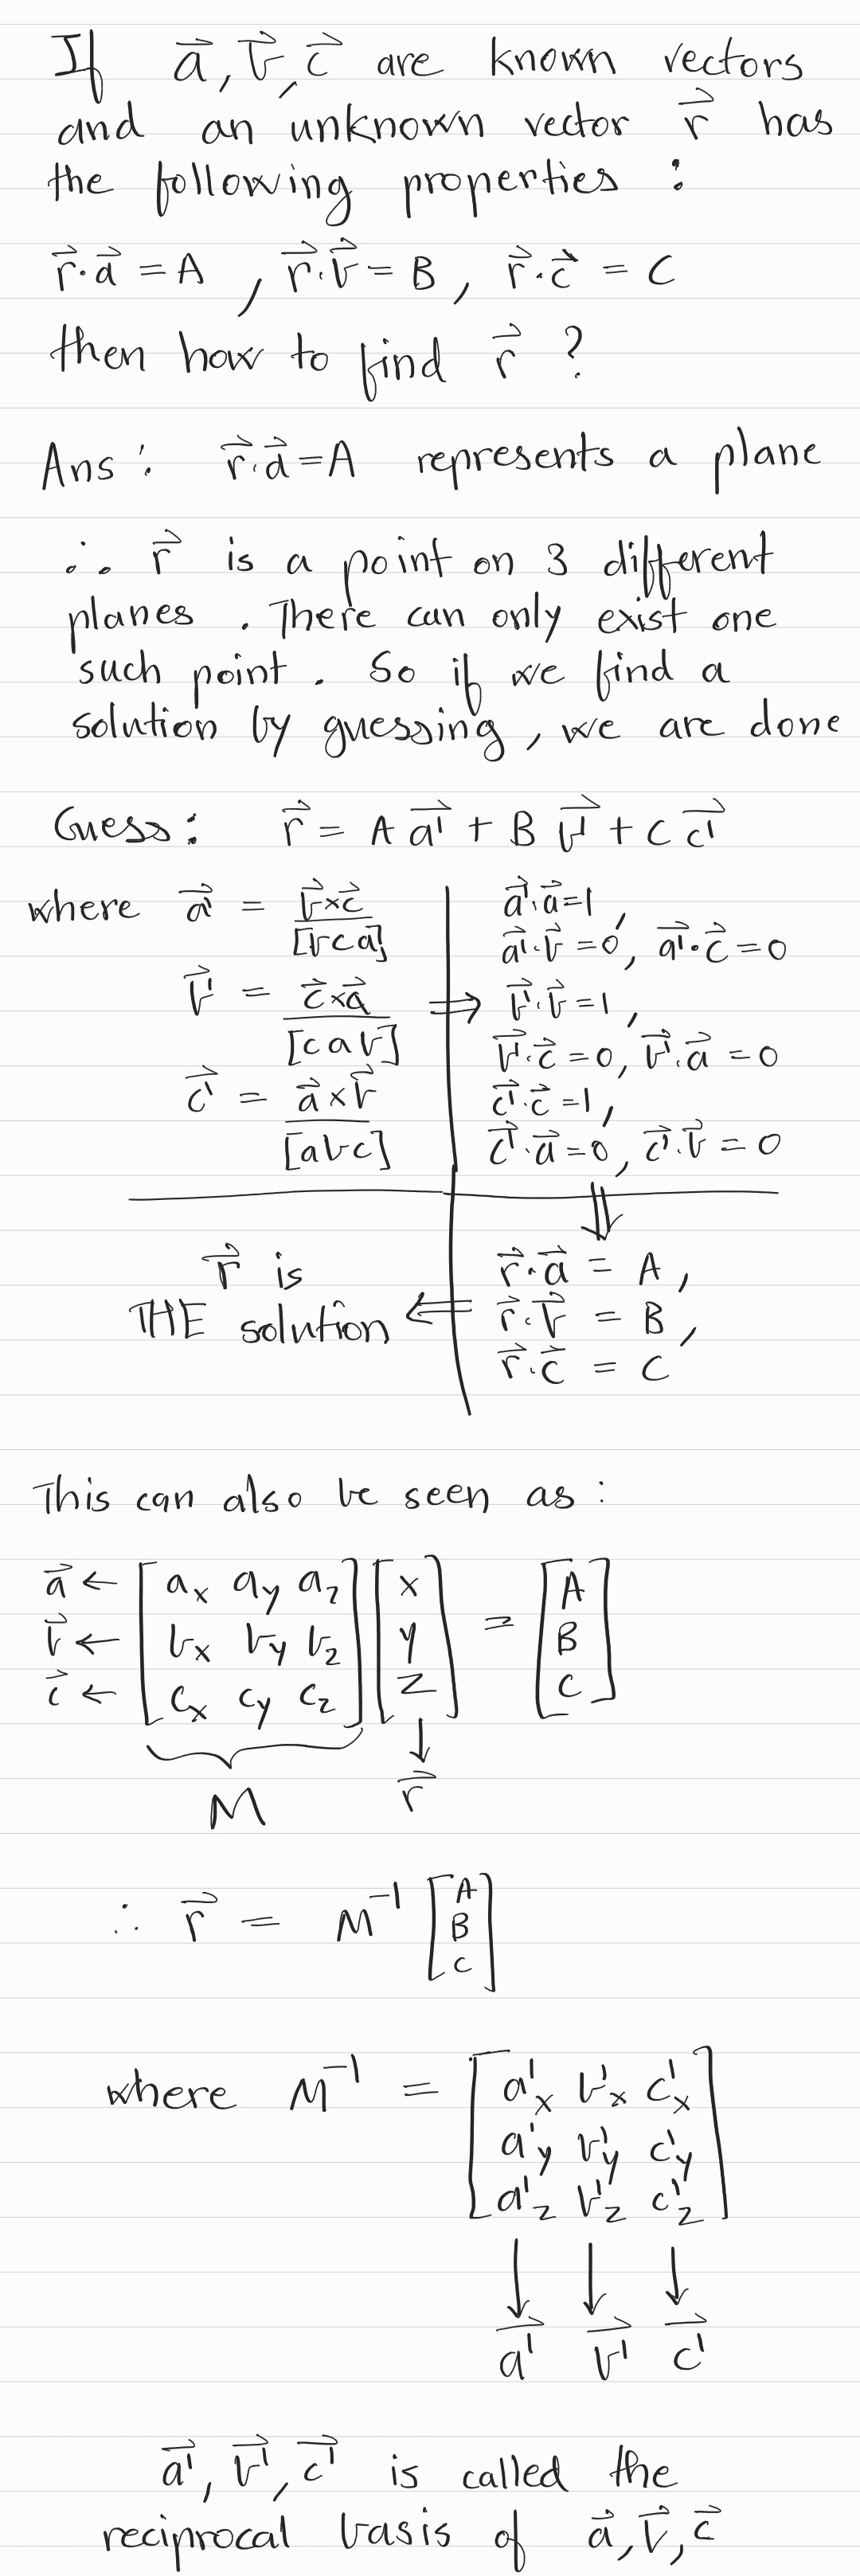 If a⃗, b⃗, c⃗ are known vectors
and an unknown vector r⃗ has
the following properties :
r⃗·a⃗ = A , r⃗·b⃗ = B , r⃗·c⃗ = C
then how to find r⃗ ?
Ans : r⃗·a⃗ = A represents a plane
∴ r⃗ is a point on 3 different
planes . There can only exist one
such point . So if we find a
solution by guessing , we are done
Guess : r⃗ = A a⃗' + B b⃗' + C c⃗'
where a⃗' = b⃗×c⃗ / [b c a]
b⃗' = c⃗×a⃗ / [c a b]
c⃗' = a⃗×b⃗ / [a b c]
⇒
a⃗'·a⃗ = 1 ,
a⃗'·b⃗ = 0 , a⃗'·c⃗ = 0
b⃗'·b⃗ = 1 ,
b⃗'·c⃗ = 0 , b⃗'·a⃗ = 0
c⃗'·c⃗ = 1 ,
c⃗'·a⃗ = 0 , c⃗'·b⃗ = 0
⇓
r⃗·a⃗ = A ,
r⃗·b⃗ = B ,
r⃗·c⃗ = C
⇐
r⃗ is
THE solution
This can also be seen as :
a⃗ ← [ a_x a_y a_z ] [ x ] [ A ]
b⃗ ← [ b_x b_y b_z ] [ y ] = [ B ]
c⃗ ← [ c_x c_y c_z ] [ z ] [ C ]
M ↓
r⃗
∴ r⃗ = M⁻¹ [ A
B
C ]
where M⁻¹ = [ a'_x b'_x c'_x
a'_y b'_y c'_y
a'_z b'_z c'_z ]
↓ ↓ ↓
a⃗' b⃗' c⃗'
a⃗', b⃗', c⃗' is called the
reciprocal basis of a⃗, b⃗, c⃗